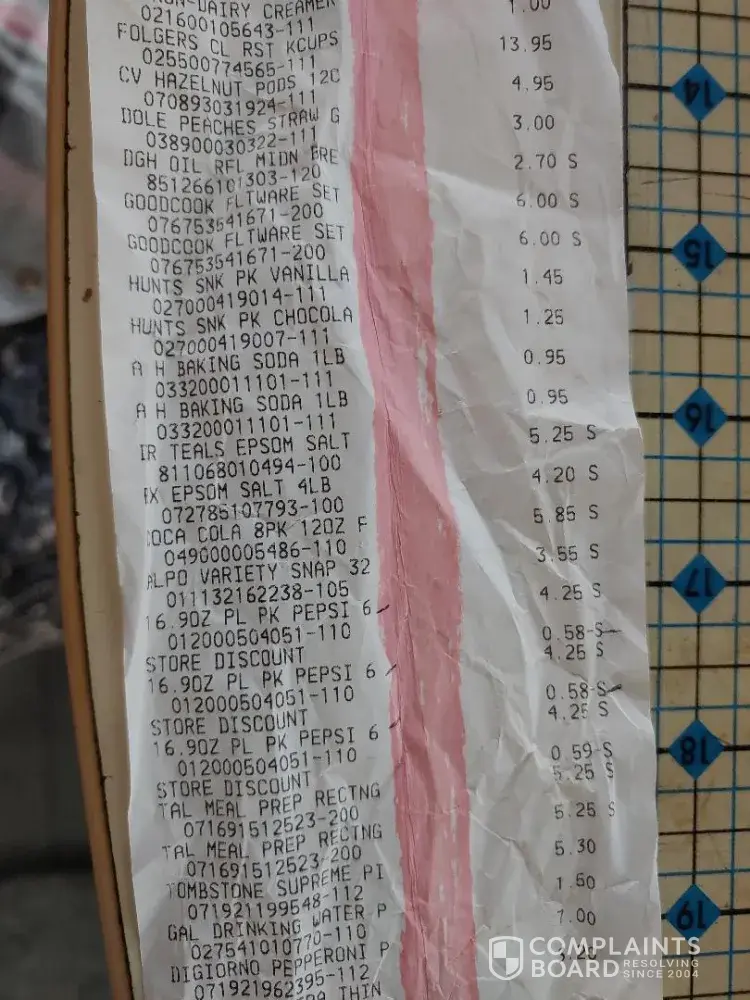 DAIRY CREAMER 1.00
021600105643-111
FOLGERS CL RST KCUPS 13.95
025500774565-111
CV HAZELNUT PODS 12C 4.95
070893031924-111
DOLE PEACHES STRAW G 3.00
038900030322-111
DGH OIL RFL MIDN BRE 2.70 S
851266101303-120
GOODCOOK FLTWARE SET 6.00 S
076753541671-200
GOODCOOK FLTWARE SET 6.00 S
076753541671-200
HUNTS SNK PK VANILLA 1.45
027000419014-111
HUNTS SNK PK CHOCOLA 1.25
027000419007-111
A H BAKING SODA 1LB 0.95
033200011101-111
A H BAKING SODA 1LB 0.95
033200011101-111
R TEALS EPSOM SALT 5.25 S
811068010494-100
RX EPSOM SALT 4LB 4.20 S
072785107793-100
COCA COLA 8PK 12OZ F 5.85 S
049000005486-110
ALPO VARIETY SNAP 32 3.55 S
011132162238-105
16.9OZ PL PK PEPSI 6 4.25 S
012000504051-110
STORE DISCOUNT 0.58-S
16.9OZ PL PK PEPSI 6 4.25 S
012000504051-110
STORE DISCOUNT 0.58-S
16.9OZ PL PK PEPSI 6 4.25 S
012000504051-110
STORE DISCOUNT 0.59-S
TAL MEAL PREP RECTNG 5.25 S
071691512523-200
TAL MEAL PREP RECTNG 5.25 S
071691512523-200
TOMBSTONE SUPREME PI 5.30
071921199548-112
GAL DRINKING WATER P 1.50
027541010770-110
DIGIORNO PEPPERONI P 7.00
071921962395-112
THIN
14
15
16
17
18
19
COMPLAINTS
BOARD RESOLVING
SINCE 2004